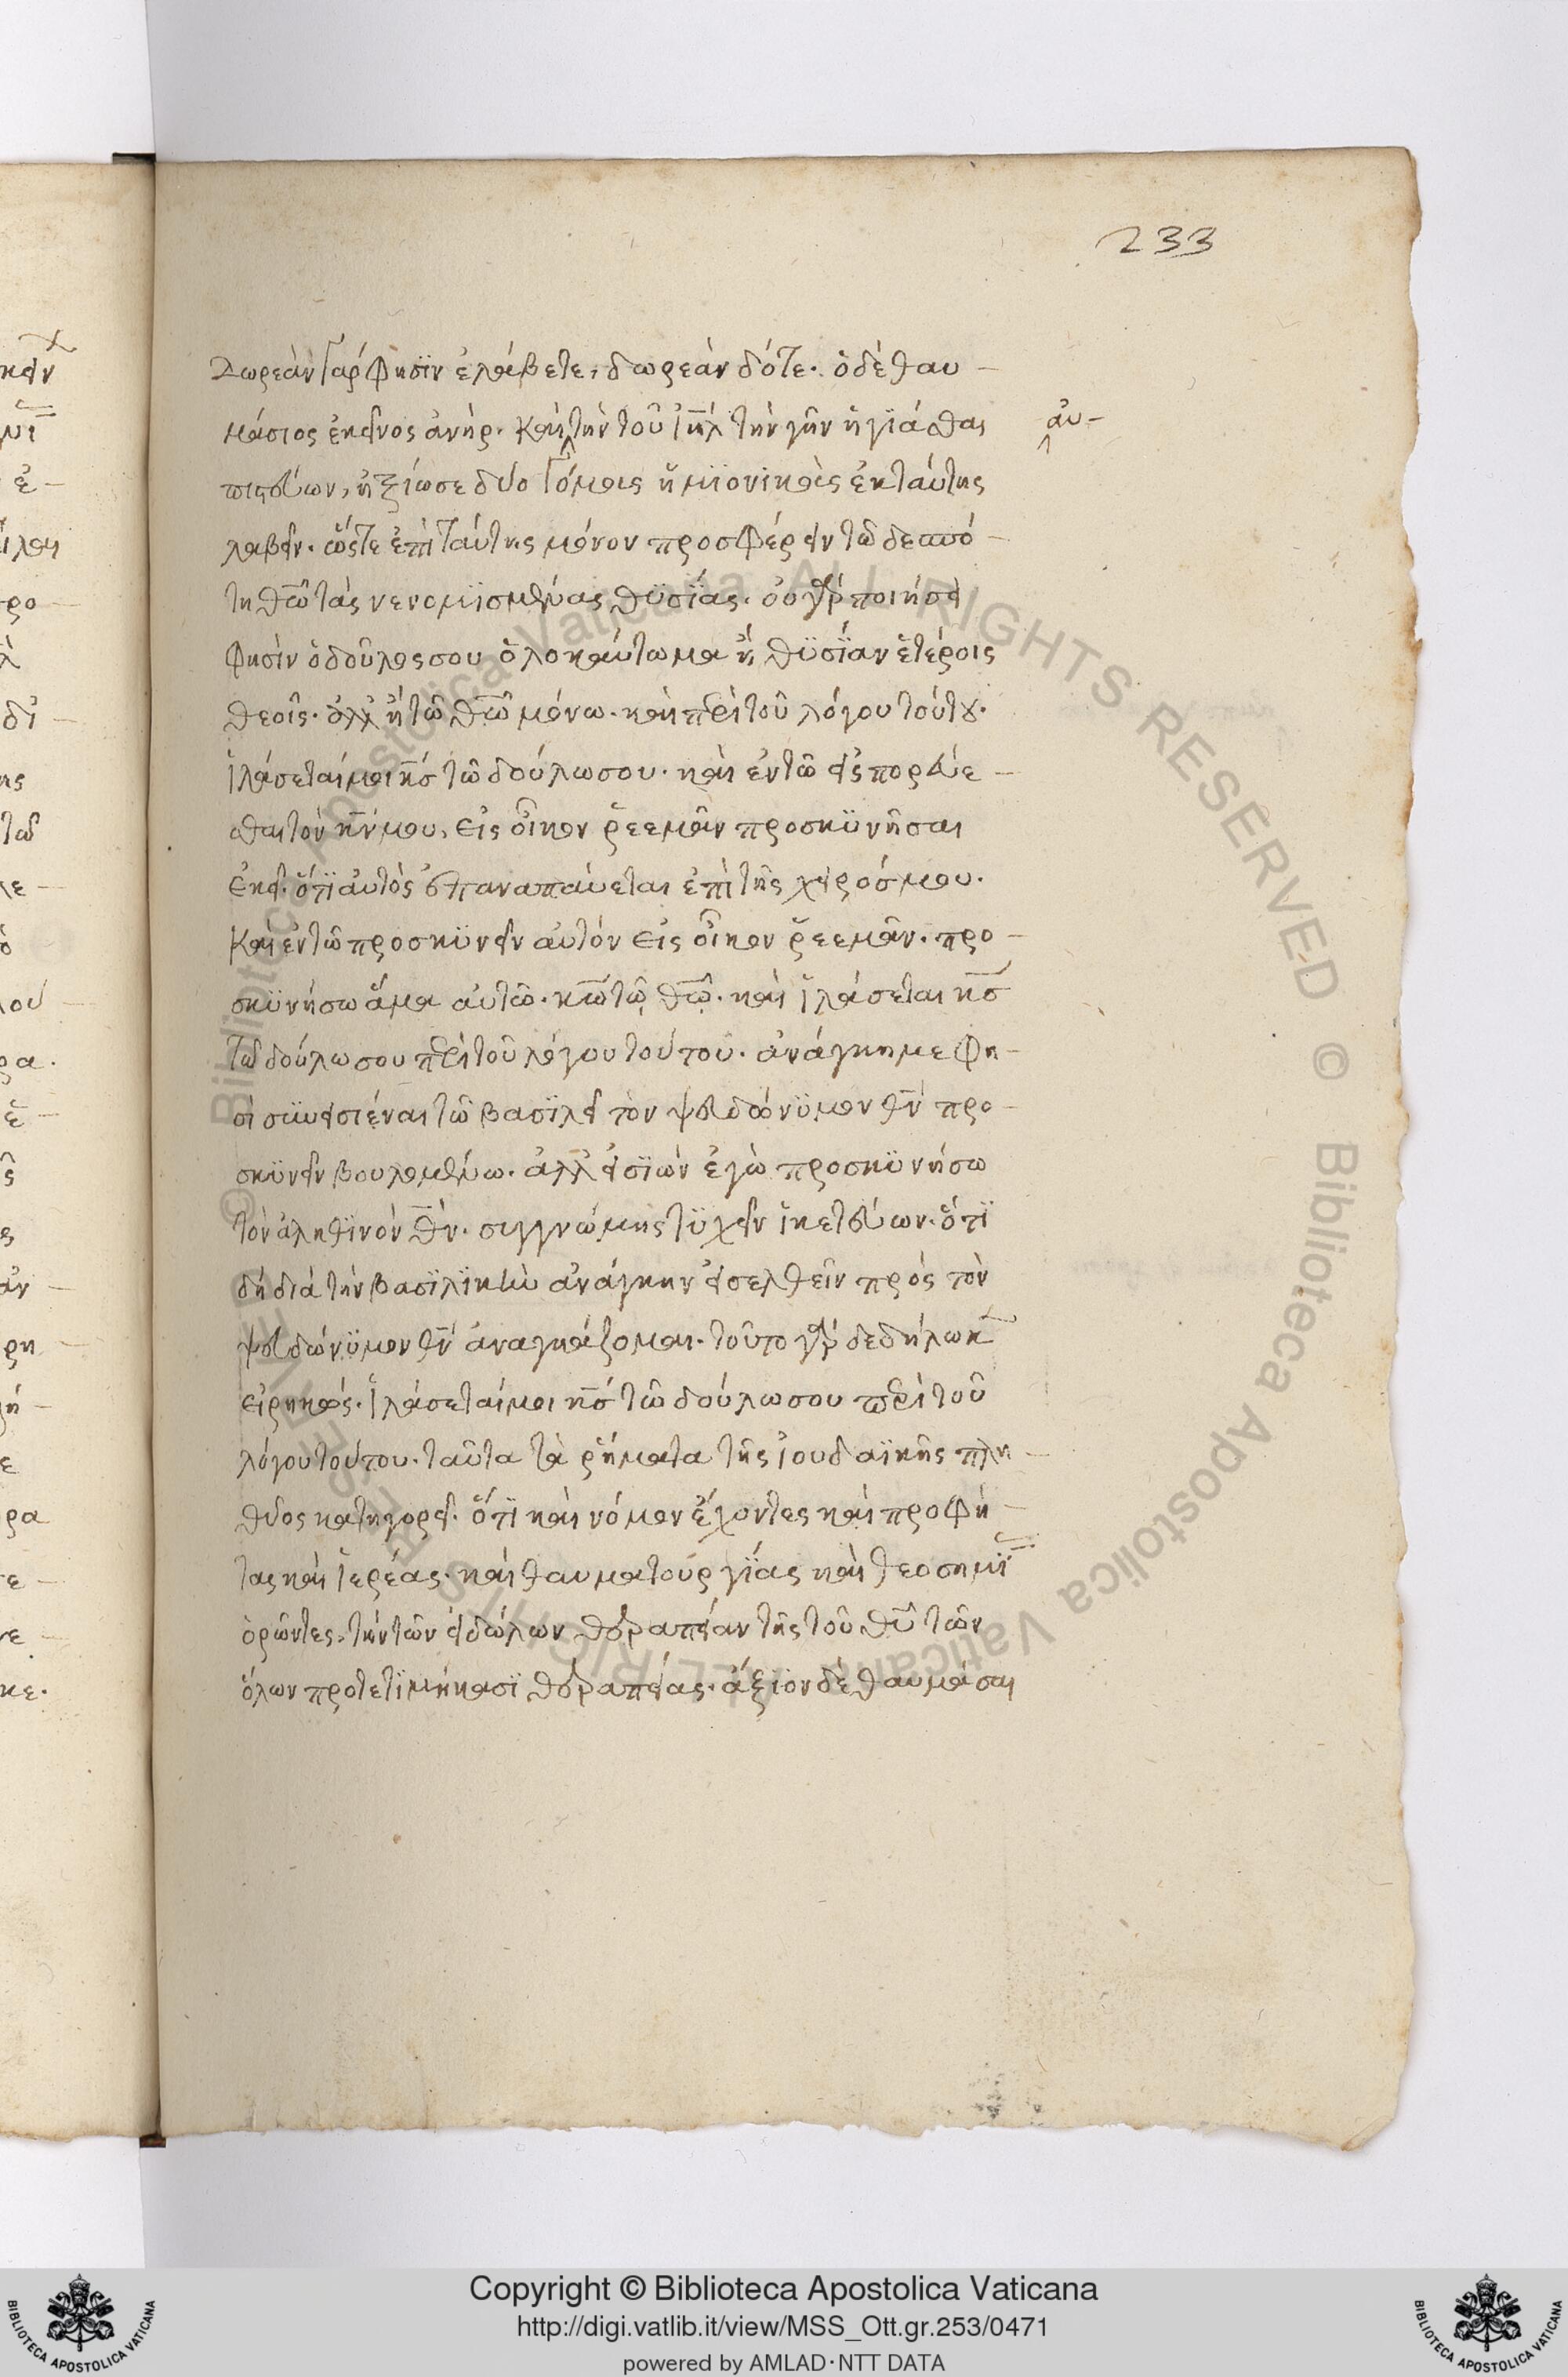 233
Δωρεὰν γὰρ φησὶν ἐλάβετε, δωρεὰν δότε. ὁ δὲ θαυ-
μάσιος ἐκεῖνος ἀνήρ. καὶ τὴν τοῦ ἰη̅λ τὴν γῆν ἡγιάσθαι αὐ-
πιστεύων, ἠξίωσε δύο γόμους ἡμϊονικοὺς ἐκ ταύτης
λαβεῖν. ὥστε ἐπὶ ταύτης μόνον προσφέρειν τῶ δεσπό-
τη θ̅ω̅ τὰς νενομϊσμένας θϋσΐας. οὐ γὰρ ποιήσει
φησὶν ὁ δοῦλος σου ὁλοκαύτωμα ἢ θϋσΐαν ἑτέροις
θεοῖς. ἀλλ' ἢ τῶ θ̅ω̅ μόνω. καὶ περὶ τοῦ λόγου τούτου.
ἱλάσεταί μοι κ̅ς̅ τῶ δούλω σου. καὶ ἐν τῶ εἰσπορεύε-
σθαι τὸν κ̅ν̅ μου, εἰς οἶκον ῥεεμᾶν προσκϋνῆσαι
ἐκεῖ. ὅτϊ αὐτὸς ἐπαναπαύεται ἐπὶ τῆς χειρός μου.
καὶ ἐν τῶ προσκϋνεῖν αὐτὸν εἰς οἶκον ῥεεμᾶν. προ-
σκϋνήσω ἅμα αὐτῶ. κ̅ω̅ τῶ θ̅ω̅. καὶ ἱλάσεται κ̅ς̅
τῶ δούλω σου περὶ τοῦ λόγου τούτου. ἀνάγκη με φη-
σὶ συνεισιέναι τῶ βασϊλεῖ τὸν ψευδώνϋμον θ̅ν̅ προ-
σκϋνεῖν βουλομένω. ἀλλ' εἰσϊὼν ἐγὼ προσκϋνήσω
τὸν ἀληθϊνὸν θ̅ν̅. συγγνώμης τϋχεῖν ἱκετεύων. ὅτϊ
δὴ διὰ τὴν βασϊλϊκὴν ἀνάγκην εἰσελθεῖν πρὸς τὸν
ψευδώνϋμον θ̅ν̅ ἀναγκάζομαι. τοῦτο γὰρ δεδήλωκ
εἰρηκώς. ἱλάσεταί μοι κ̅ς̅ τῶ δούλω σου περὶ τοῦ
λόγου τούτου. ταῦτα τὰ ῥήματα τῆς ἰουδαϊκῆς πλη-
θύος κατηγορεῖ. ὅτϊ καὶ νόμον ἔχοντες καὶ προφή-
τας καὶ ἱερέας. καὶ θαυματουργΐας καὶ θεοσημϊ
ὁρῶντες. τὴν τῶν εἰδώλων θεραπείαν τῆς τοῦ θ̅υ̅ τῶν
ὅλων προτετϊμήκασϊ θεραπείας. ἄξϊον δὲ θαυμάσαι
Copyright © Biblioteca Apostolica Vaticana
http://digi.vatlib.it/view/MSS_Ott.gr.253/0471
powered by AMLAD·NTT DATA